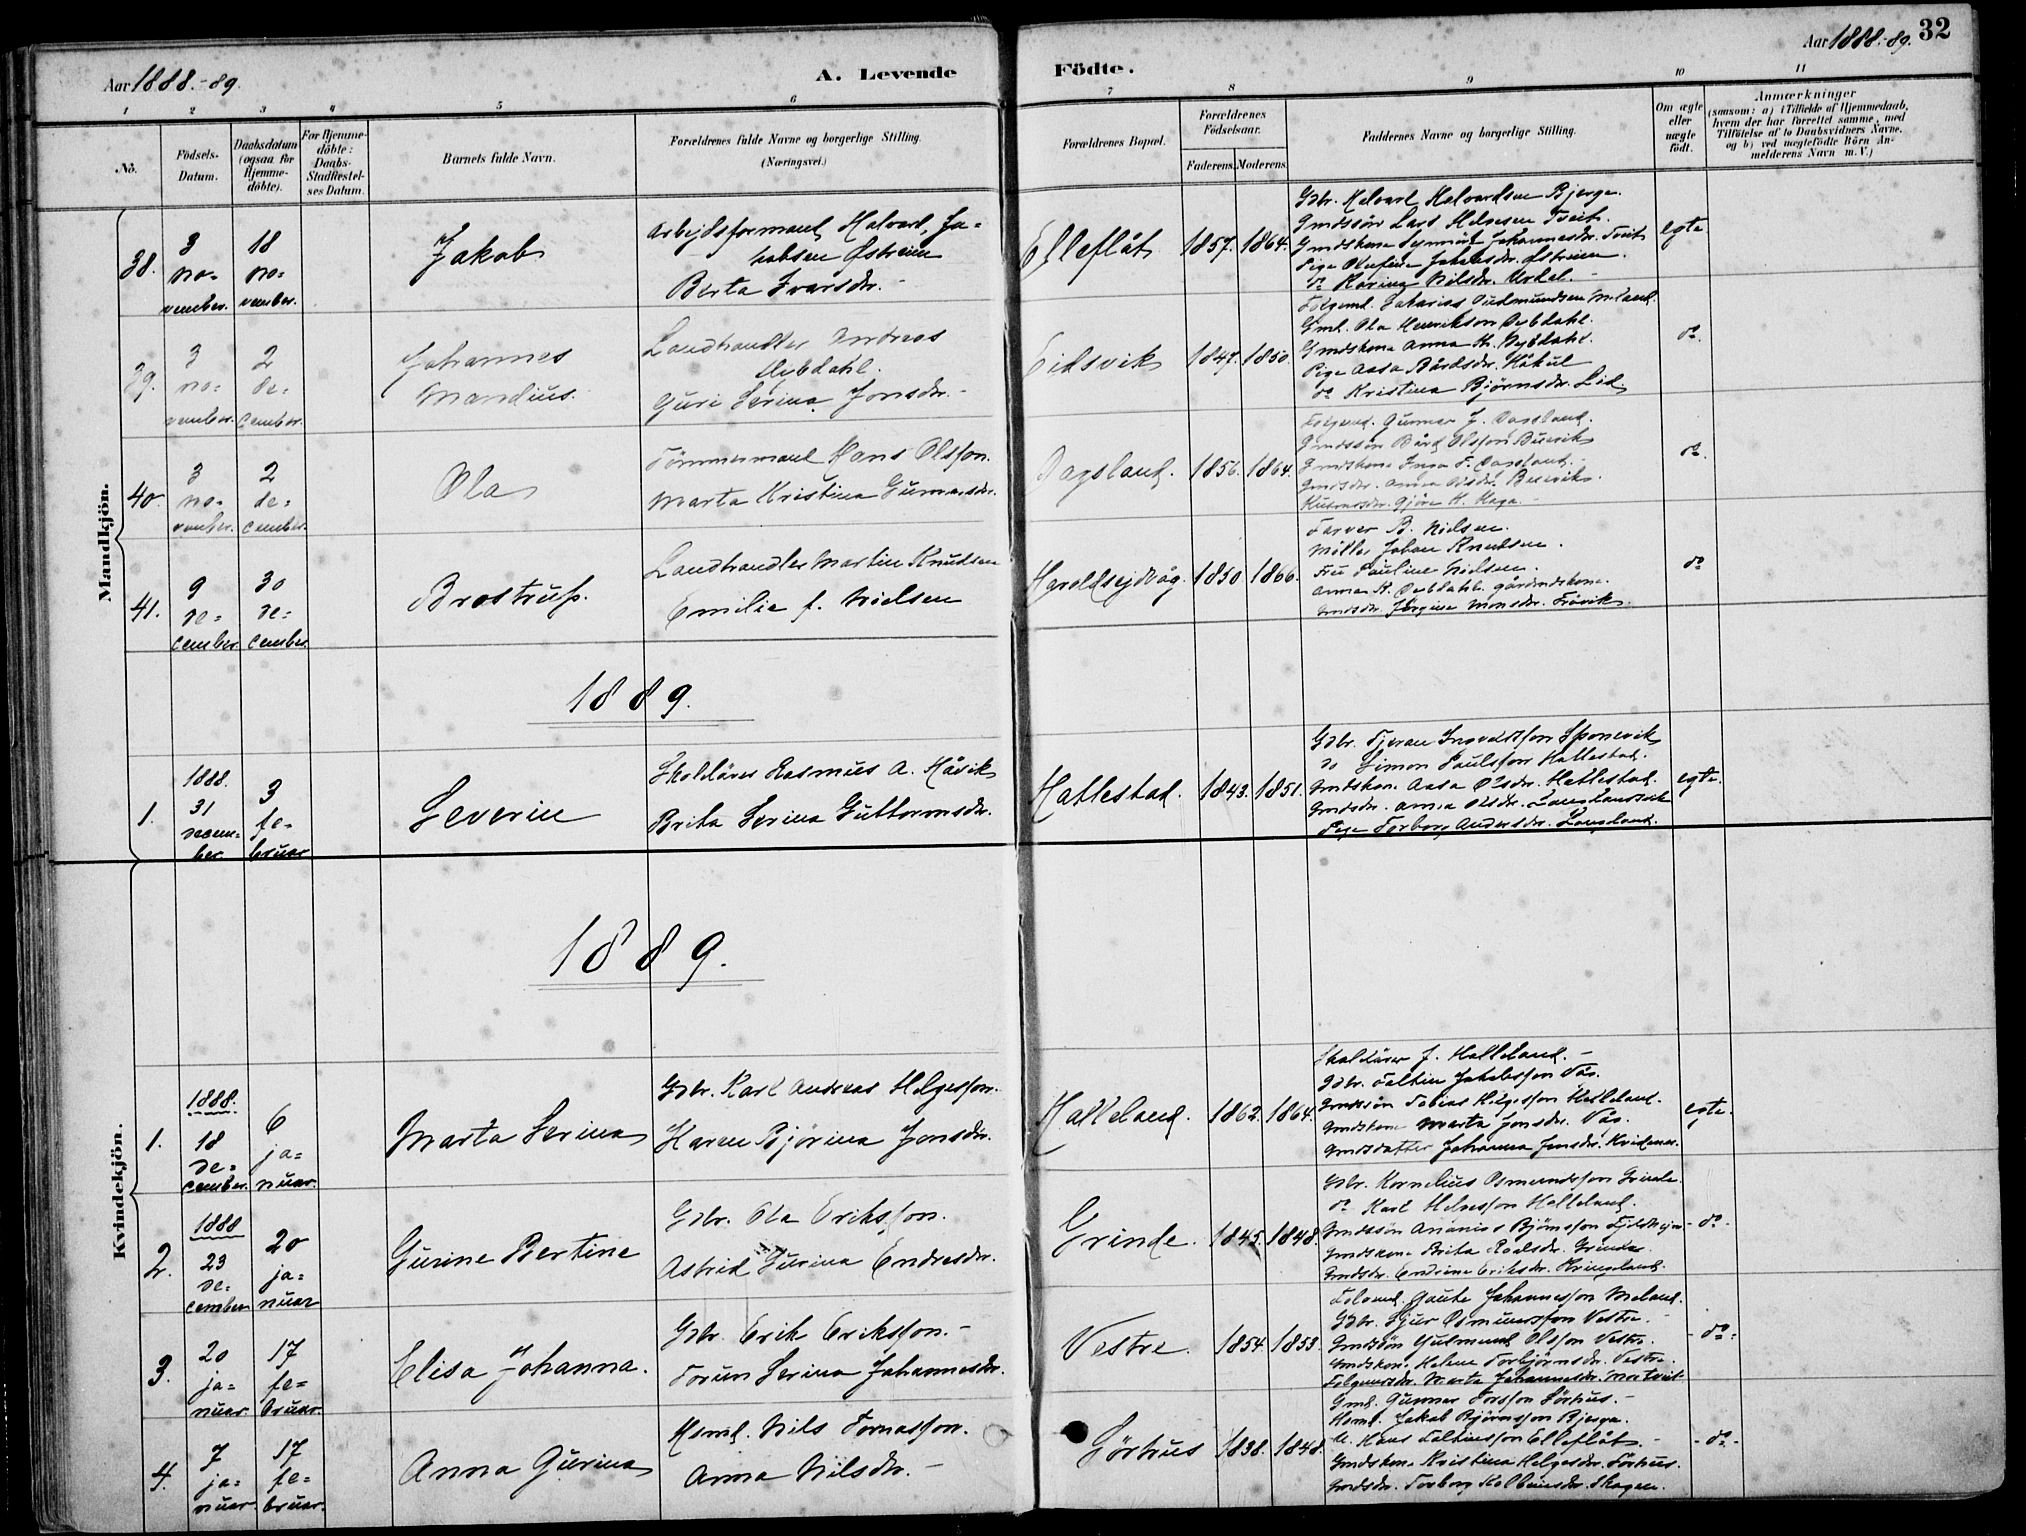 Aar 1888.-89.
A. Levende
Födte.
Aar 1888.-89. 32
1 2 3 4 5 6 7 8 9 10 11
No.
Födsels-Datum.
Daabsdatum (ogsaa for Hjemmedöbte).
For Hjemmedöbte: Daabs-Stadfæstelses Datum.
Barnets fulde Navn.
Forældrenes fulde Navne og borgerlige Stilling.
(Næringsvei.)
Forældrenes Bopæl.
Forældrenes Födselsaar.
Faderens. Moderens.
Faddernes Navne og borgerlige Stilling.
Om ægte eller uægte födt.
Anmærkninger
(saasom: a) i Tilfælde af Hjemmedaab, hvem der har forrettet samme, med Tilföielse af to Daabsvidners Navne, og b) ved uægtefödte Börn Anmelderens Navn m.V.)
Mandkjön.
38.
3 november.
18 november.
Jakob
Arbejdsformand Halvard Ja=
kobsen Østreim
Berta Ivarsdr.
Elleflåt 1857. 1864.
Gbr. Halvard Halvardsen Bjerge.
Gmdssön Lars Helgesen Tveit.
Gmdskona Synnöve Johannesdr. Tveit
Pige Olufine Jakobsdr. Østreim.
do Karina Nilsdr.
egte
39.
3 november.
2 december.
Johannes
Mandius.
Landhandler Andreas
Dybdahl.
Guri Serina Jonsdr.
Eidsvik 1847. 1850.
Folgemd. Sakarias Gudmundsen
Gmd. Ola Henrikson Dybdahl.
Gmdskona Anna K. Dybdahl.
Pige Aasa Bårdsdr. Håkul
do Kristina Björnsdr. Lid.
do.
40.
3 november.
2 december.
Ola
Tömmermand Hans Olsson.
Marta Kristina Gunnarsdr.
Dagsland. 1856. 1864.
Folgemd. Gunnar J. Dagsland.
Gmdssön Bård Olsson Buevik
Gmdskona Inga T. Dagsland.
Gmdsdr. Anna Olsdr. Buevik.
Gjöre K. Haga.
do.
41.
9 december.
30 december.
Brostrup.
Landhandler Martin Knudsen
Emilie f. Nielsen
Haroldsejdvåg. 1850 1866.
Farver B. Nielsen.
Möller Johan Knudsen.
Fru Pauline Nielsen.
Anna K. Dybdahl. gårdmdskone.
Gmdsdr. Jörgine Monsdr. Frövik.
do
1889.
1.
1888.
31 december.
3 februar
Severin
Skolelärer Rasmus A. Håvik
Brita Serina Guttormsdr.
Hatlestad. 1843. 1851.
Gbr. Tjeran
do Simon Paulsson Hatlestad.
Gmdskona Aasa Olsdr. Hatlestad.
Gmdsdr. Anna Olsdr.
Pige Torborg Andersdr. Langeland.
egte.
Kvindekjön.
1889.
1.
1888.
18 december.
6 januar.
Marta Serina
Gbr. Karl Andreas Helgesson.
Karen Björina Jonsdr.
Halleland. 1862. 1864.
Skolelärer J. Halleland.
Gbr. Faltin Jakobsson Vås.
Gmdssön Tobias Helgesson Helleland.
Gmdskona Marta Jonsdr. Vås.
Gmdsdatter Johanna Jonsdr.
egte.
2.
1888
23 december
20 januar
Gurine Bertine
Gbr. Ola Eriksson.
Astrid Gurina Endresdr.
Grinde. 1845. 1848.
Gbr. Kornelius Osmundsson Grinde
do Karl Helgesson Helleland.
Gmdssön Ananias Björnsson
Gmdskona Brita Roalsdr. Grinde.
Gmdsdr. Endrine Eriksdr. Kringeland.
- do -
3.
20 januar
17 februar.
Elisa Johanna.
Gbr. Erik Eriksson.
Torun Serina Johannesdr.
Vestre. 1854. 1853.
Folgemd. Gaute Johannesson Meland.
Gbr. Sjur Osmundsson Vestre.
Gmdssön Gulmund Olsson Vestre.
Gmdskona Helene Torbjörnsdr. Vestre.
Folgemdsdr. Marta Johannesdr.
- do -
4.
7 januar.
17 februar.
Anna Gurina
Hsmd. Nils Tomasson.
Anna Nilsdr.
Sörhus 1838. 1848.
Gmd. Gunnar Torsson Sörhus.
Hsmd. Jakob Björnsson Bjerga.
U. Hans Faltinsson Elleflåt.
Gmdskona Kristina Helgesdr. Sörhus.
Gmdsdr. Torborg Kolbeinsdr. Skogen.
- do -